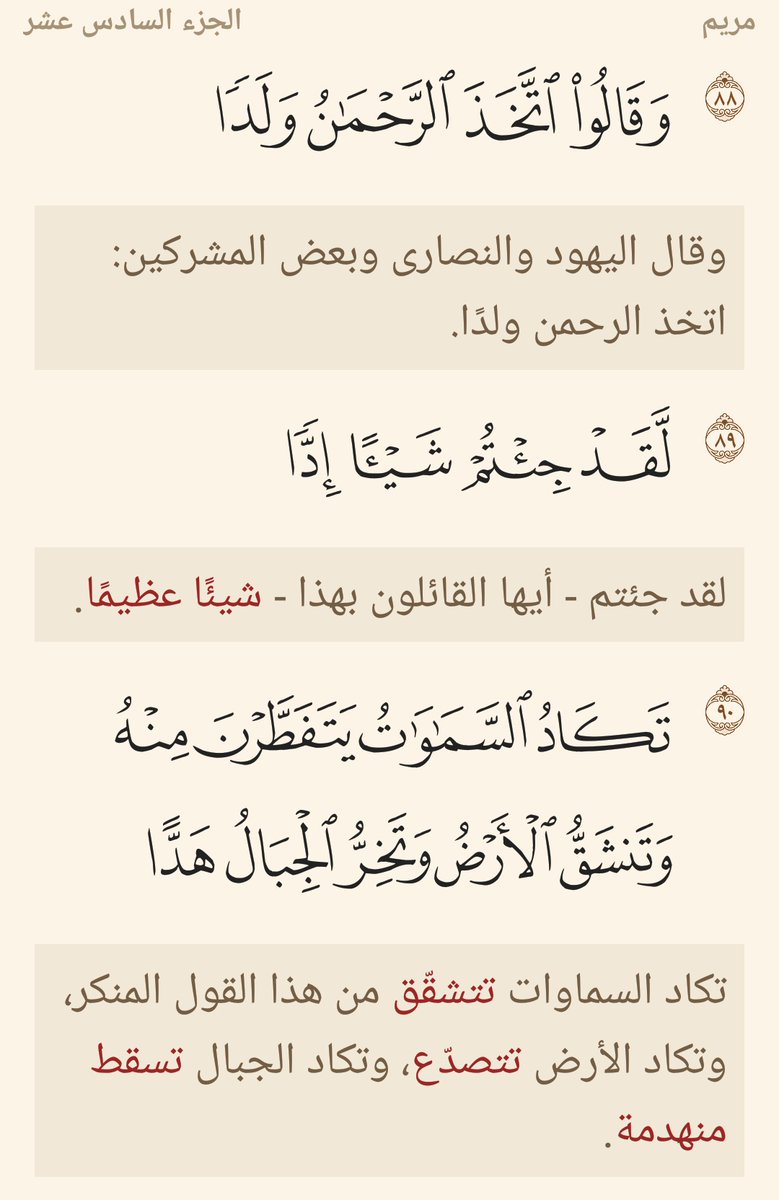 مريم
الجزء السادس عشر
٨٨ وَقَالُوا۟ ٱتَّخَذَ ٱلرَّحْمَـٰنُ وَلَدًا
وقال اليهود والنصارى وبعض المشركين:
اتخذ الرحمن ولدًا.
٨٩ لَّقَدْ جِئْتُمْ شَيْـًٔا إِدًّا
لقد جئتم - أيها القائلون بهذا - شيئًا عظيمًا.
٩٠ تَكَادُ ٱلسَّمَـٰوَٰتُ يَتَفَطَّرْنَ مِنْهُ
وَتَنشَقُّ ٱلْأَرْضُ وَتَخِرُّ ٱلْجِبَالُ هَدًّا
تكاد السماوات تتشقّق من هذا القول المنكر،
وتكاد الأرض تتصدّع، وتكاد الجبال تسقط
منهدمة.